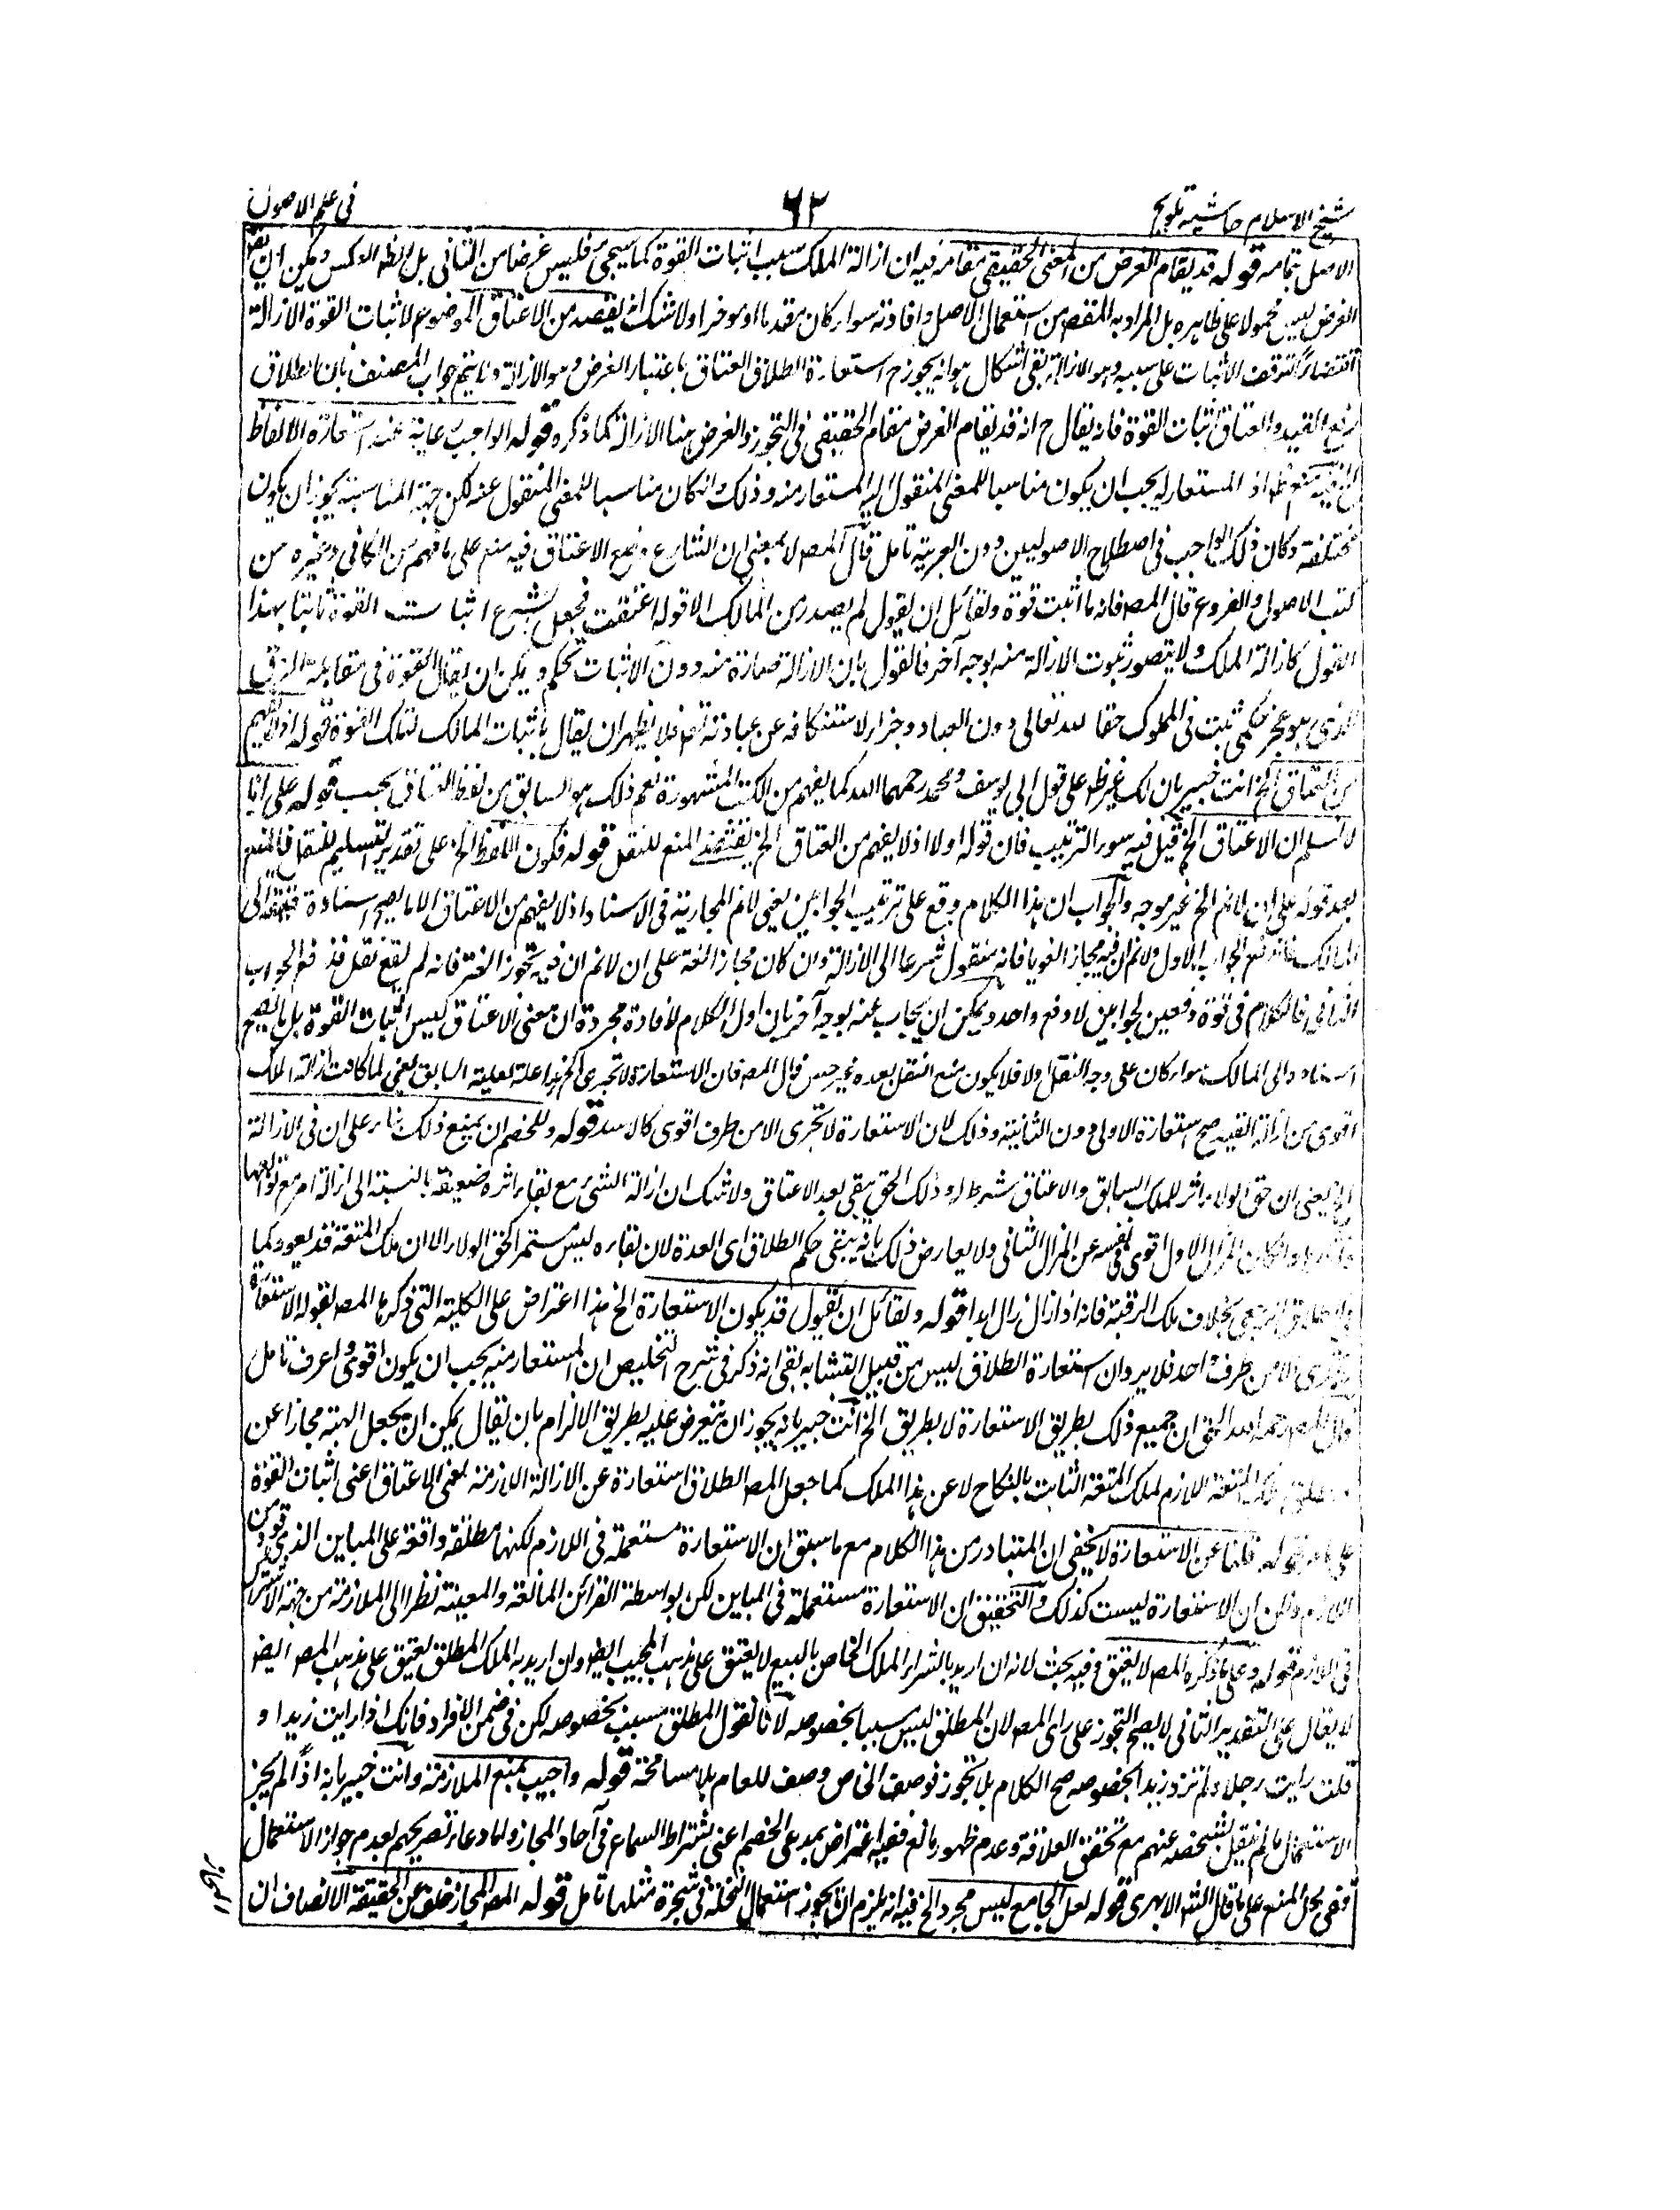 شيخ الاسلام حاشيه تلويح
٦٢
فى علم الاصول
الاصل بتمامه قوله قد يقام الغرض من المعنى الحقيقى مقامه فيه ان ازالة الملك سبب اثبات القوة كما سيجئ فليس غرضا من الثانى بل الظ العكس ويمكن ان
الغرض ليس محمولا على ظاهره بل المراد به المقصد من استعمال الاصل وافادته سواء كان مقدما او موخرا ولا شك انه يقصد من الاعتاق الموضوع لاثبات القوة الازالة
اقتضاء لتوقف الاثبات على سببه وهو الازالة بقى اشكال هو انه يجوز ح استعارة الطلاق العتاق باعتبار الغرض وهو الازالة ولا يتم جواب المصنف بان الطلاق
رفع القيد والعتاق اثبات القوة فانه يقال ح انه قد يقام الغرض مقام الحقيقى فى التجوز والغرض هنا الازالة كما ذكره قوله الواجب رعاية عند استعارة الالفاظ
اذ المستعار له يجب ان يكون مناسبا للمعنى المنقول اليه المستعار منه وذلك وان كان مناسبا للمعنى المنقول عنه لكن جهة المناسبة يجوز ان يكون
مختلفة وكان ذلك الواجب فى اصطلاح الاصوليين دون العربية تامل قال المص لا بمعنى ان الشارع وضع الاعتاق فيه منع على ما فهم من الكافى وغيره من
كتب الاصول والفروع قال المص فانه ما اثبت قوة ولقائل ان يقول لم يصدر من المالك الا قوله اعتقت فجعل الشرع اثبات القوة ثابتا بهذا
القول كازالة الملك ولا يتصور ثبوت الازالة منه بوجه آخر فالقول بان الازالة صادرة منه دون الاثبات تحكم ويمكن ان يقال القوة فى مقابلة الرق
الذى هو عجز حكمى ثبت فى المملوك حقا لله تعالى دون العباد وجزاء لاستنكافه عن عبادته تع فلا يظهر ان يقال باثبات المالك لتلك القوة قوله اذ لا يفهم
من العتاق الخ انت خبير بان لك غير ظ على قول ابى يوسف ومحمد رحمهما الله كما يفهم من الكتب المشهورة نعم ذلك هو السابق من لفظ العتاق بحسب قوله على انا
لا نسلم ان الاعتاق الخ قيل فيه سوء الترتيب فان قوله اولا اذ لا يفهم من العتاق الخ يقتضى المنع للنقل قوله فيكون اللفظ الخ على تقدير التسليم للنقل فالمنع
بعد قوله على ان لا نم الخ غير موجه والجواب ان هذا الكلام وقع على ترتيب الجوابين يعنى لا نم المجازية فى الاسناد اذ لا يفهم من الاعتاق الا ما يصح اسناده الى
المالك فاندفع الجواب الاول ولا نم ان فيه مجازا لغويا فانه منقول شرعا الى الازالة وان كان مجازا لغة على ان لا نم ان فيه تجوز الغة فانه لم يقع نقل فد فع الجواب
الثانى فالكلام فى قوة دفعين لجوابين لا دفع واحد ويمكن ان يجاب عنه بوجه آخر بان اول الكلام لافادة مجردة ان معنى الاعتاق ليس اثبات القوة بل ما يصح
اسناده الى المالك سواء كان على وجه النقل او لا فلا يكون منع النقل بعده غير حسن قال المص فان الاستعارة لا تجرى الخ هذا علة لعلية السابق يعنى لما كانت ازالة الملك
اقوى من ازالة القيد صح استعارة الاولى دون الثانية وذلك لان الاستعارة لا تجرى الا من طرف اقوى كالاسد قوله وللخصم ان يمنع ذلك بناء على ان فى الازالة
الخ يعنى ان حق الولاء اثر للملك السابق والاعتاق شرط له وذلك الحق يبقى بعد الاعتاق ولا شك ان ازالة الشئ مع بقاء اثره ضعيفة بالنسبة الى ازالة امر مع توابعها
وان كان المزال الاول اقوى فى نفسه عن المزال الثانى ولا يعارض ذلك بانه يبقى حكم الطلاق اى العدة لان بقاءه ليس مستمرا كحق الولاء الا ان ملك المتعة قد يعود كما
فى الطلاق الرجعى بخلاف ملك الرقبة فانه اذا زال زال ابدا قوله ولقائل ان يقول قد يكون الاستعارة الخ هذا اعتراض على الكلية التى ذكرها المص بقوله الاستعارة
لا تجرى الا من طرف واحد فلا يرد ان استعارة الطلاق ليس من قبيل التشابه بقى انه ذكر فى شرح التلخيص ان المستعار منه يجب ان يكون اقوى واعرف تامل
قال المص رحمه الله الحق ان جميع ذلك بطريق الاستعارة لا بطريق الخ انت خبير بانه يجوز ان يتعرض عليه بطريق الالزام بان يقال يمكن ان يجعل الهبة مجازا عن
ملك المتعة اللازم لملك المتعة الثابت بالنكاح لا عن هذا الملك كما جعل المص الطلاق استعارة عن الازالة اللازمة لمعنى الاعتاق اعنى اثبات القوة
على ما قوله قلنا عن الاستعارة لا يخفى ان المتبادر من هذا الكلام مع ما سبق ان الاستعارة مستعملة فى اللازم لكنها مطلقة واقعة على المباين الذى هو من
اللازم وظن ان الاستعارة ليست كذلك والتحقيق ان الاستعارة مستعملة فى المباين لكن بواسطة القرائن المانعة والمعينة نظرا الى الملازمة من جهة الاشتراك
فى اللازم قوله وعلى ما ذكره المص لا يعتق وفيه بحث لانه ان اريد بالشراء الملك الخاص بالبيع لا يعتق على مذهب المجيب ايض وان اريد به الملك المطلق يعتق على مذهب المص ايض
لا يقال على التقدير الثانى لا يصح التجوز على راى المص لان المطلق ليس سببا بخصوصه لانا نقول المطلق مسبب بخصوصه لكن فى ضمن الافراد فانك اذا رايت زيدا و
قلت رايت رجلا ولم ترد زيدا بخصوصه صح الكلام بل تجوز فوصف الخاص وصف للعام بلا مسامحة قوله واجيب بمنع الملازمة وانت خبير بانه اذا لم يجز
الاستعمال ما لم ينقل بشخصه عنهم مع تحقق العلاقة وعدم ظهور مانع ففيه اعتراض بمدعى الخصم اعنى اشتراط السماع فى آحاد المجاز واما ادعاء تصريحهم بعدم جواز الاستعمال
ففى محل المنع على ما قال الش الابهرى قوله لعل الجامع ليس مجرد الخ فيه انه يلزم ان يجوز استعمال النخلة فى شجرة مثلها تامل قوله المص المجاز خلف عن الحقيقة الانصاف ان